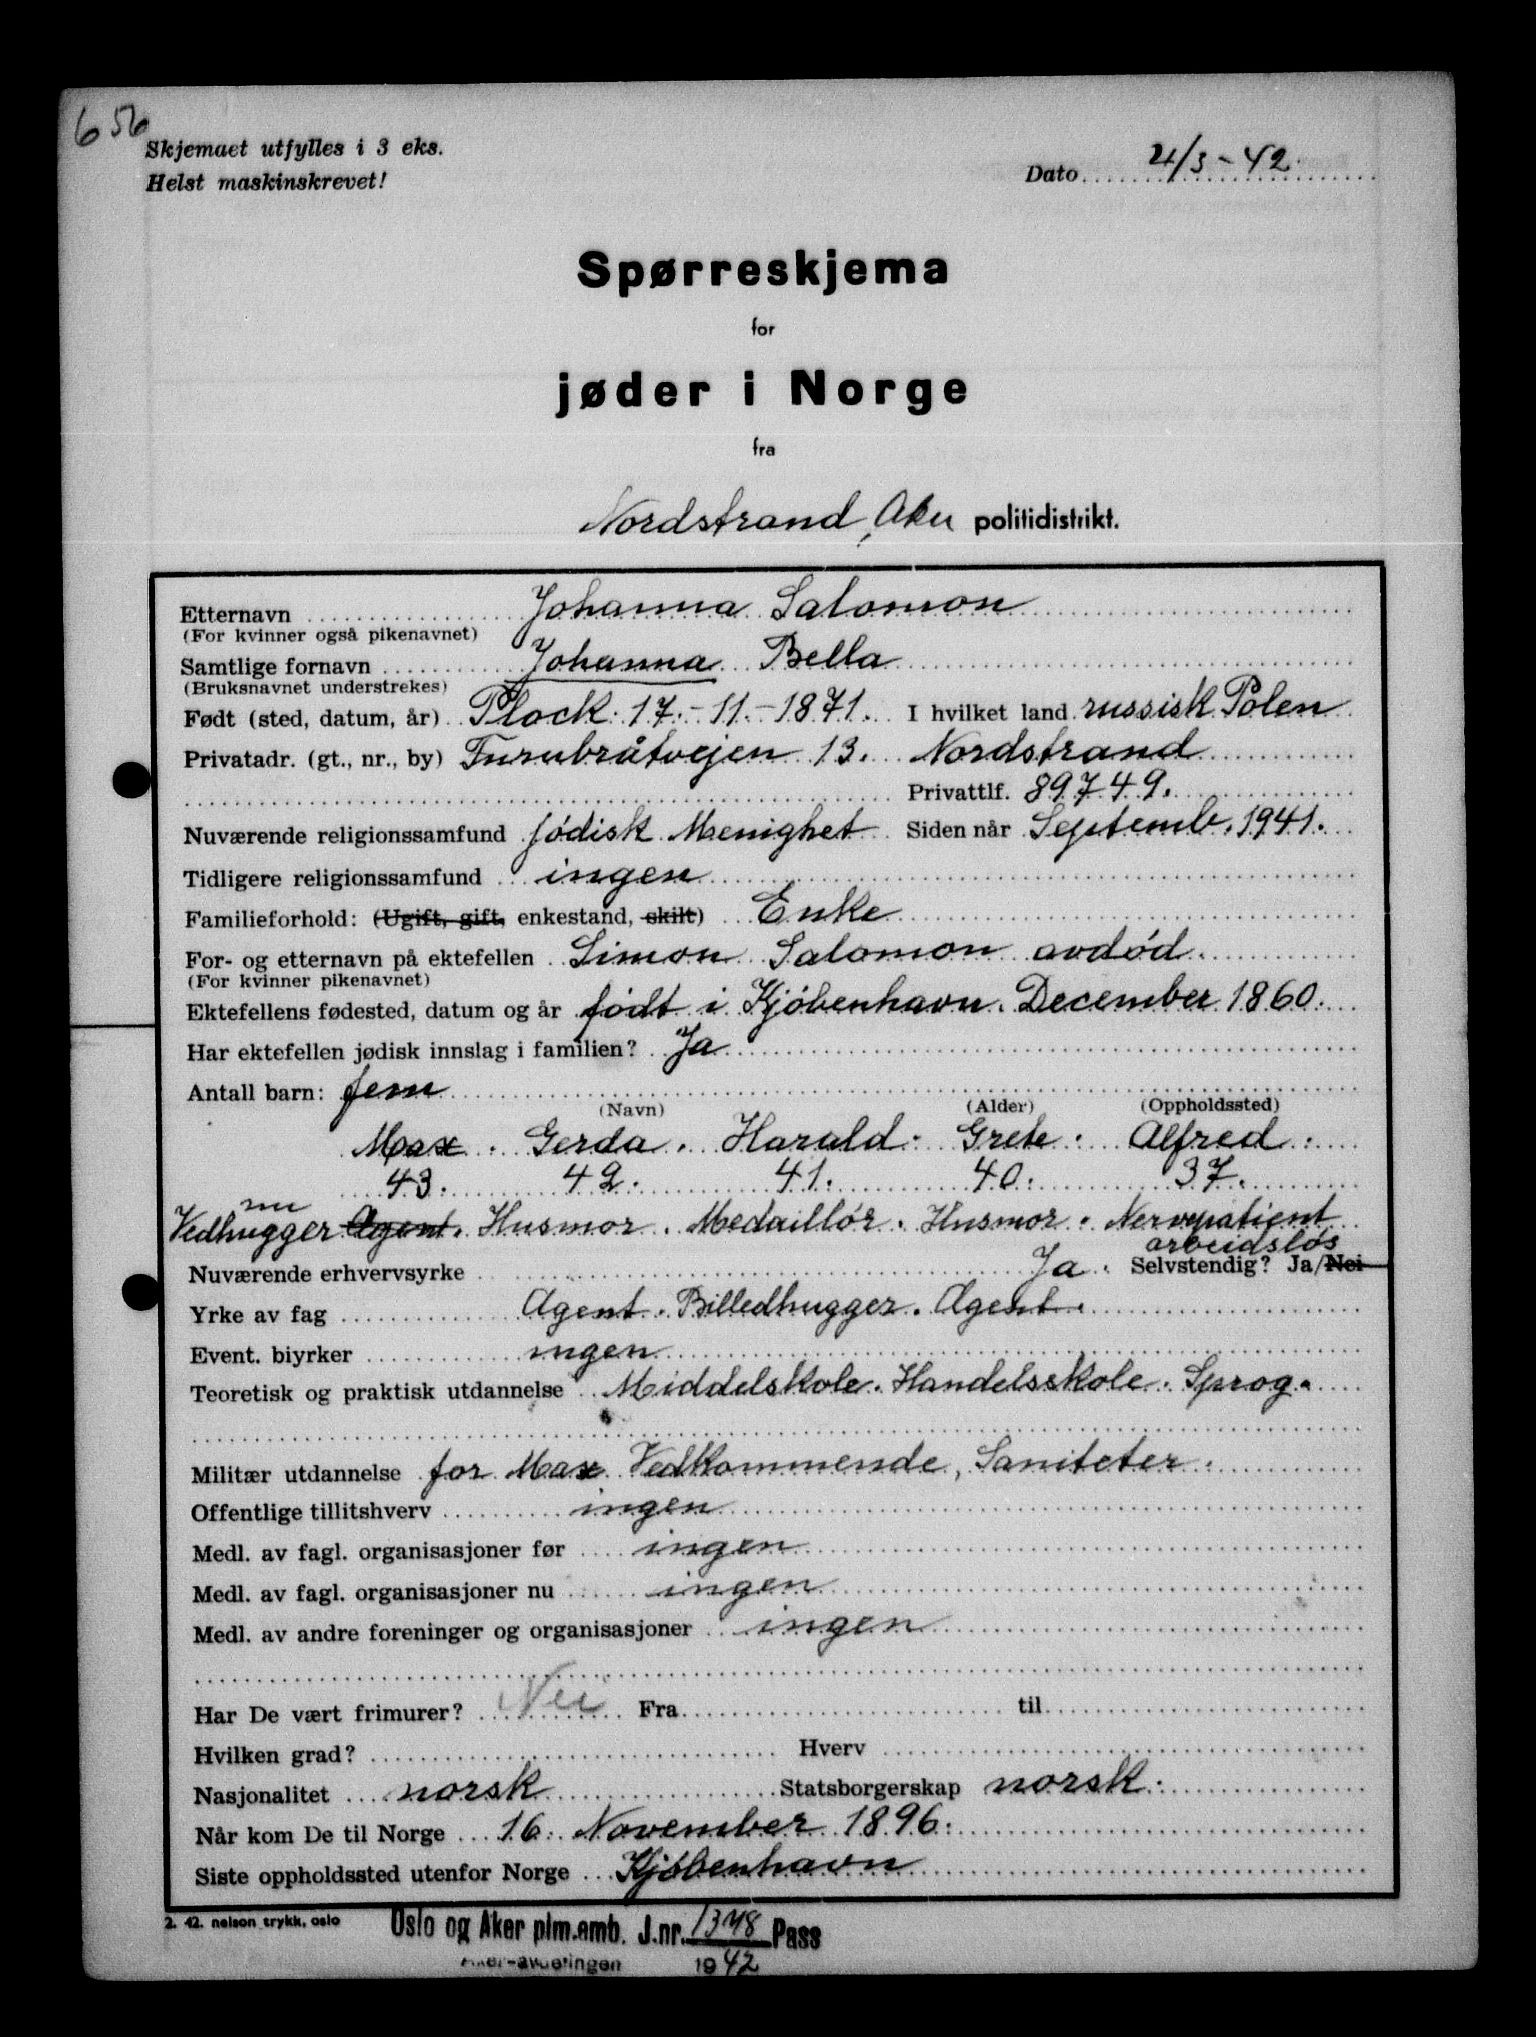 656
Skjemaet utfylles i 3 eks.
Helst maskinskrevet!
Dato 4/3-42
Spørreskjema
for
jøder i Norge
fra
Nordstrand, Aker politidistrikt.
Etternavn Johanna Salomon
(For kvinner også pikenavnet)
Samtlige fornavn Johanna Bella
(Bruksnavnet understrekes)
Født (sted, datum, år) Plock. 17.-11.-1871. I hvilket land russisk Polen
Privatadr. (gt., nr., by) Furubråtvejen 13. Nordstrand
Privattlf. 89749.
Nuværende religionssamfund jødisk Menighet Siden når Septemb. 1941.
Tidligere religionssamfund ingen
Familieforhold: (Ugift, gift, enkestand, skilt) Enke
For- og etternavn på ektefellen Simon Salomon avdød.
(For kvinner pikenavnet)
Ektefellens fødested, datum og år født i Kjöbenhavn. December 1860.
Har ektefellen jødisk innslag i familien? Ja
Antall barn: fem
(Navn) (Alder) (Oppholdssted)
Max. Gerda. Harald. Grete. Alfred.
43. 42. 41. 40. 37.
nu
Vedhugger Agent. Husmor. Medaillör. Husmor. Nervepatient
arbeidsløs
Nuværende erhvervsyrke Ja. Selvstendig? Ja/Nei
Yrke av fag Agent. Billedhugger. Agent.
Event. biyrker ingen
Teoretisk og praktisk utdannelse Middelskole. Handelsskole. Sprog.
Militær utdannelse for Max Vedkommende, Saniteter.
Offentlige tillitshverv ingen
Medl. av fagl. organisasjoner før ingen
Medl. av fagl. organisasjoner nu ingen
Medl. av andre foreninger og organisasjoner ingen
Har De vært frimurer? Nei Fra til
Hvilken grad? Hverv
Nasjonalitet norsk Statsborgerskap norsk.
Når kom De til Norge 16. November 1896.
Siste oppholdssted utenfor Norge Kjöbenhavn
2. 42. nelson trykk, oslo
Oslo og Aker plm.emb. J.nr. 1348 Pass
Aker-avdelingen 1942